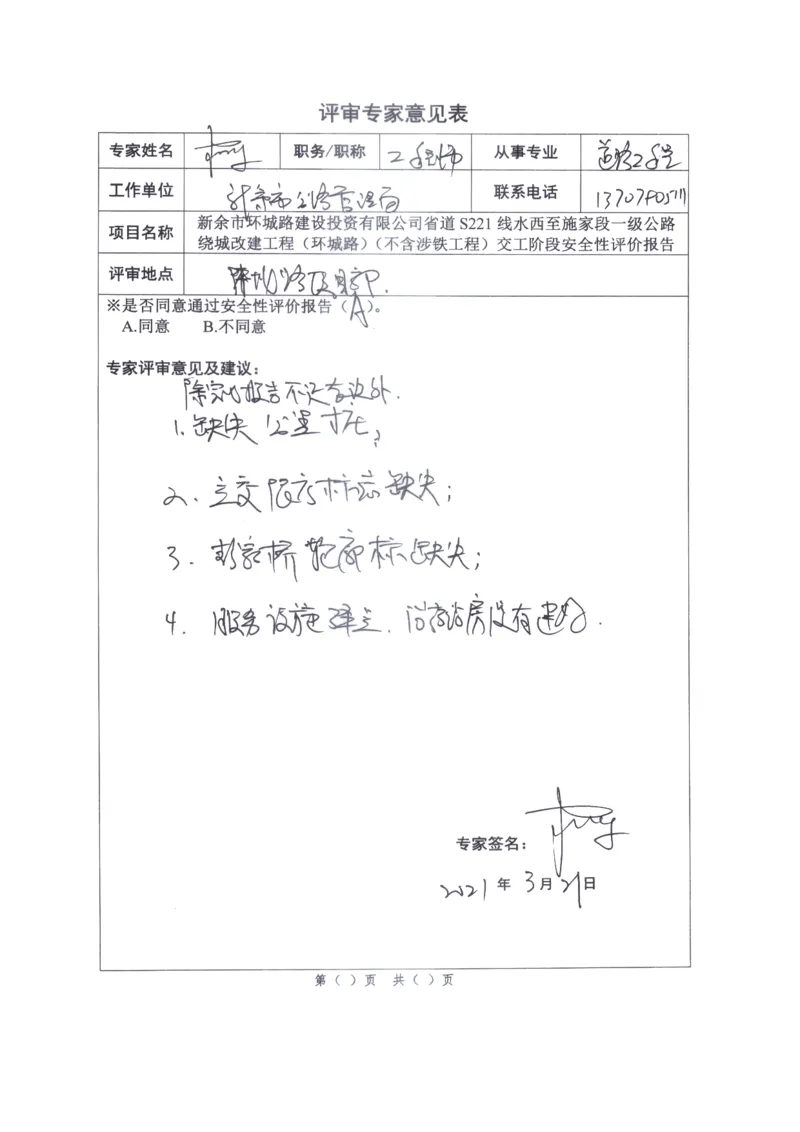 评审专家意见表
专家姓名 职务/职称 工程师 从事专业 道路工程
工作单位 新余市公路管理局 联系电话
项目名称 新余市环城路建设投资有限公司省道 S221 线水西至施家段一级公路
绕城改建工程（环城路）（不含涉铁工程）交工阶段安全性评价报告
评审地点
※是否同意通过安全性评价报告（A）。
A.同意 B.不同意
专家评审意见及建议：
1.缺失公里桩；
2.立交限高标志缺失；
3.彭家桥轮廓标缺失；
4.服务设施 房没有建好.
专家签名：
2021年3月21日
第（ ）页 共（ ）页